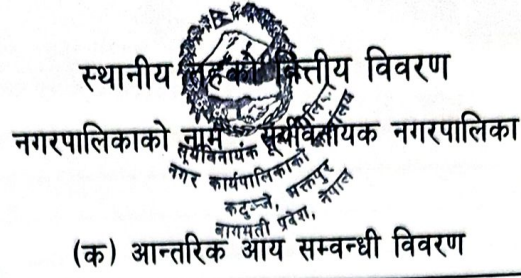 स्थानीय तहको वित्तीय विवरण
नगरपालिकाको नाम सूर्यविनायक नगरपालिका
सूर्यविनायक नगरपालिका
नगर कार्यपालिकाको कार्यालय
कटुन्जे, भक्तपुर
बागमती प्रदेश, नेपाल
(क) आन्तरिक आय सम्वन्धी विवरण